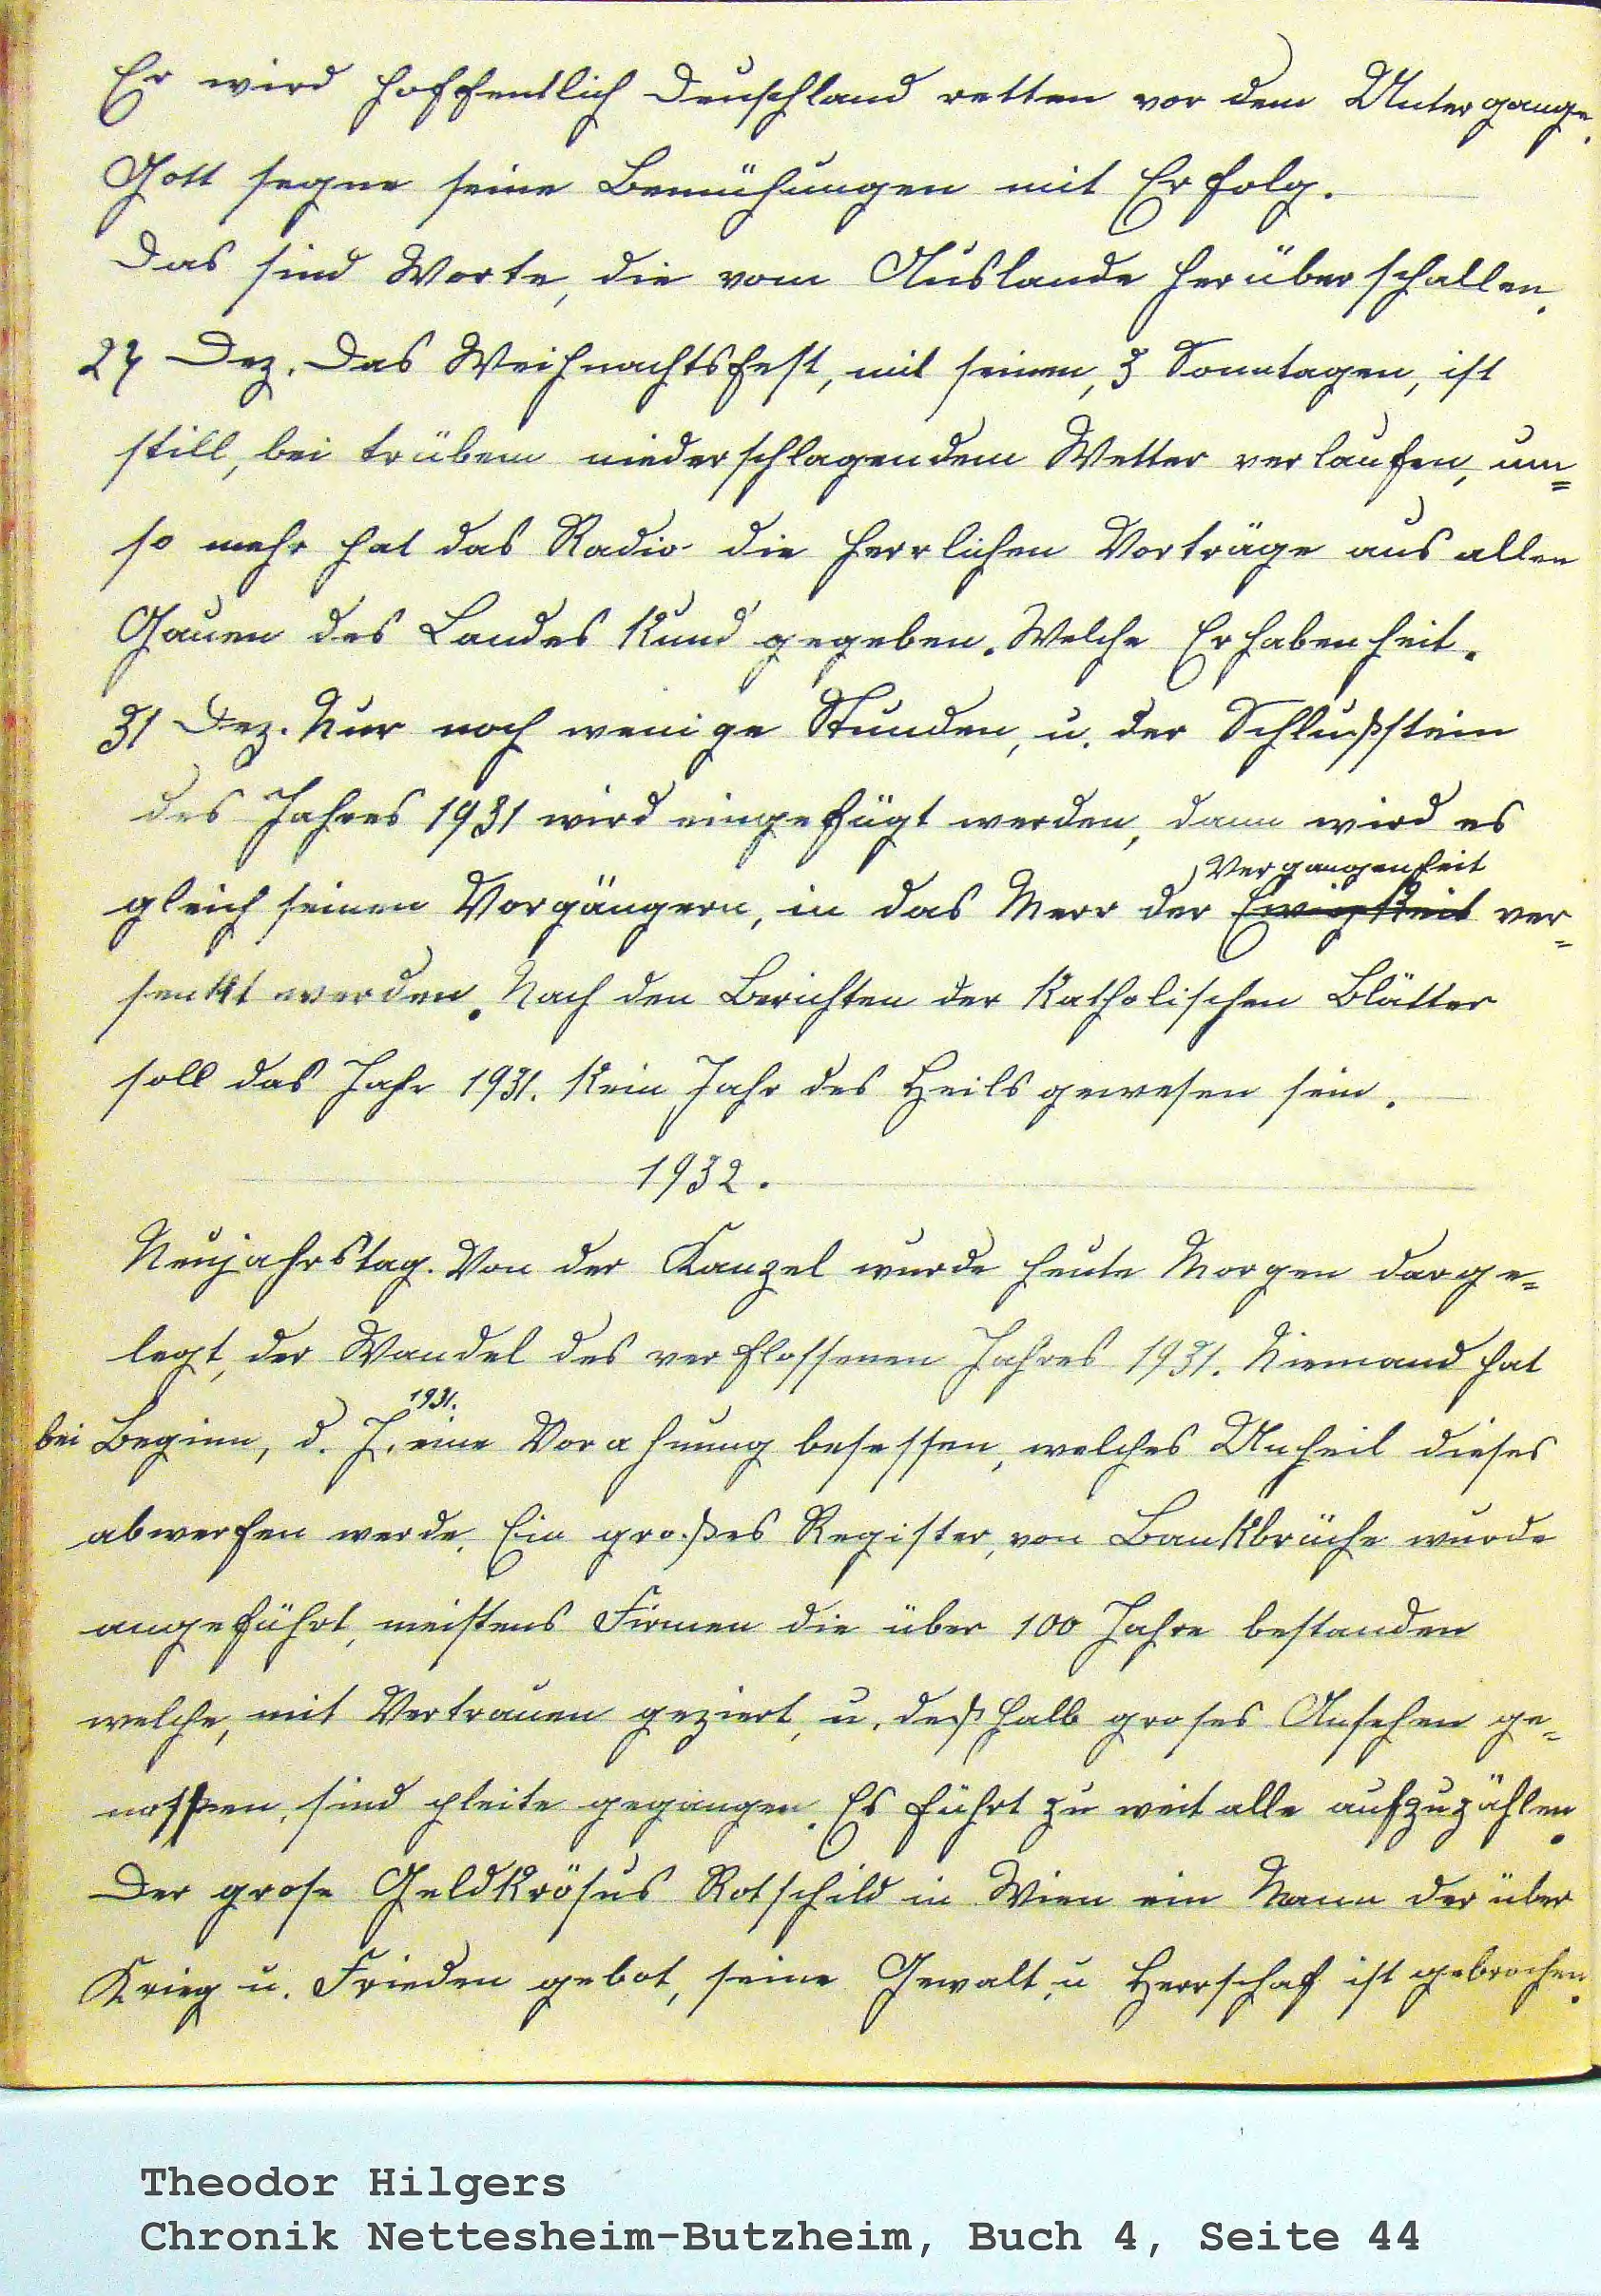 Er wird hoffentlich Deuschland retten vor dem Untergange.
Gott segne seine Bemühungen mit Erfolg.
Das sind Worte, die vom Auslande herüber schallen.
27 Dez. Das Weihnachtsfest, mit seinen, 3 Sonntagen, ist
still, bei trübem niederschlagendem Wetter verlaufen, um=
so mehr hat das Radio die herrlichen Vorträge aus allen
Gauen des Landes Kund gegeben. Welche Erhabenheit.
31 Dez. Nur noch wenige Stunden, u. der Schlußstein
des Jahres 1931 wird eingefügt werden, dann wird es
Vergangenheit
gleich seinen Vorgängern, in das Meer der Ewigkeit ver=
senkt werden. Nach den Berichten der Katholischen Blätter
soll das Jahr 1931. Kein Jahr des Heils gewesen sein.
1932.
Neujahrstag. Von der Kanzel wurde heute Morgen darge=
legt, der Wandel des verflossenen Jahres 1931. Niemand hat
1931.
bei Beginn, d. J. eine Vorahnung besessen, welches Unheil dieses
abwerfen werde. Ein großes Register, von Bankbrüche wurde
angeführt, meistens Firmen die über 100 Jahre bestanden
welche, mit Vertrauen geziert, u. deßhalb groses Ansehen ge=
nossen, sind pleite gegangen. Es führt zu weit alle aufzuzählen.
Der grose Geldkrösus Rotschild in Wien ein Mann der über
Krieg u. Frieden gebot, seine Gewalt, u Herrschaf ist gebrochen.
Theodor Hilgers
Chronik Nettesheim-Butzheim, Buch 4, Seite 44